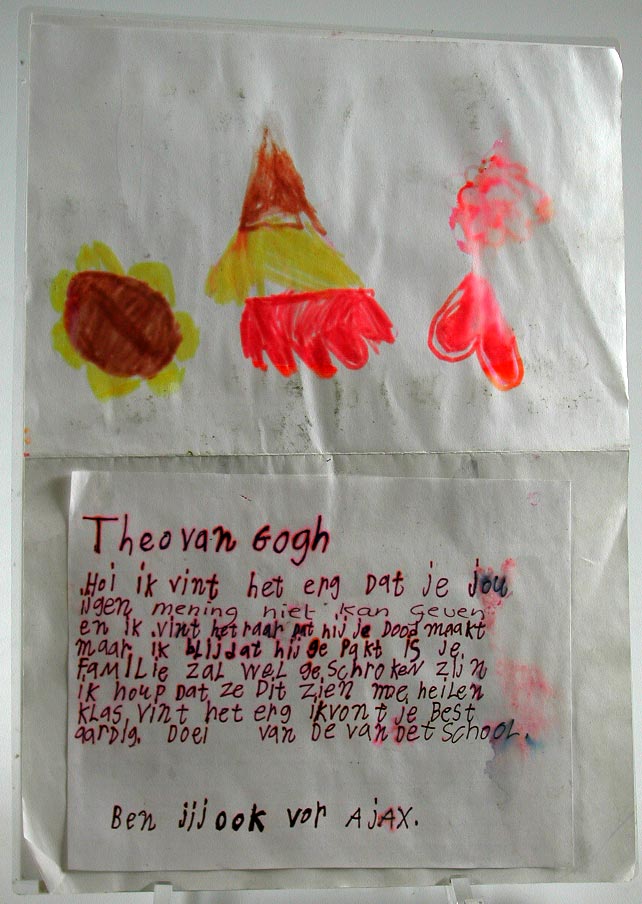 Theo van Gogh
Hoi ik vint het erg dat je jou
ijgen mening niet kan geven
en ik vint het raar dat hij je Dood maakt
maar ik blij dat hij ge pakt is je
FAMILIE zal wel ge schroken zijn
ik houp dat ze Dit zien me heilen
klas vint het erg ik vont je Best
aardig. Doei van De van Det School.
Ben jij ook vor AjAX.